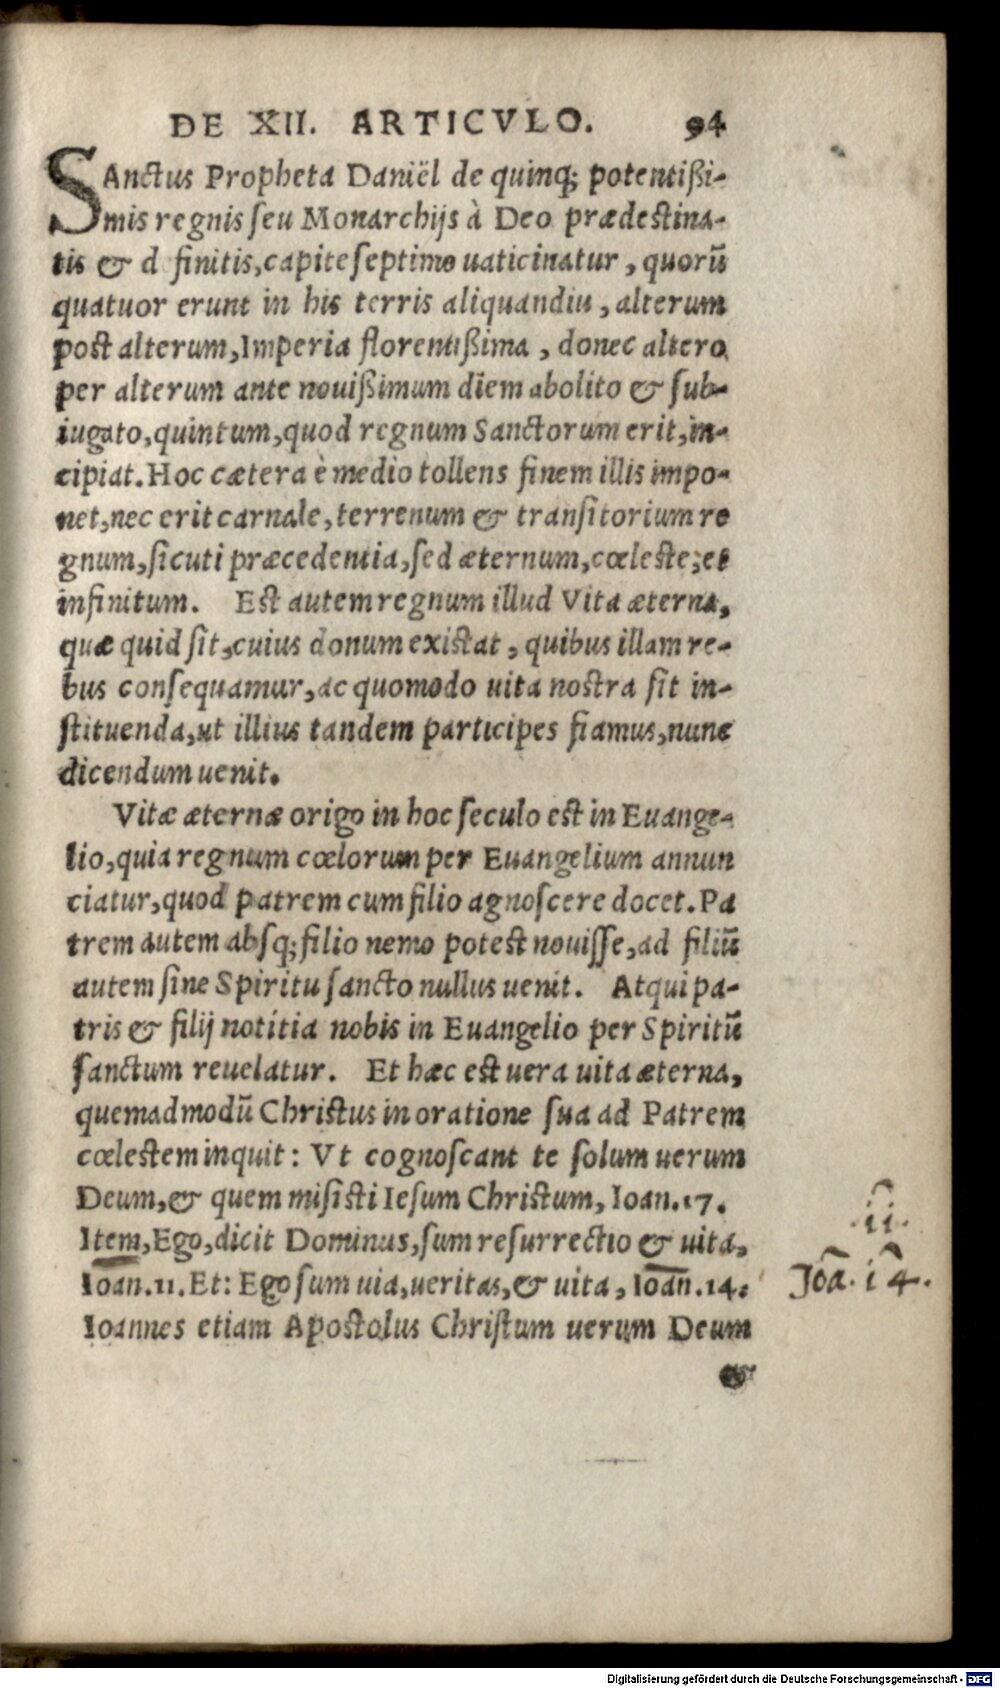 DE XII. ARTICVLO. 94
SAnctus Propheta Daniël de quinq; potentißi-
mis regnis seu Monarchijs à Deo prædestina-
tis & d finitis, capite septimo uaticinatur, quorū
quatuor erunt in his terris aliquandiu, alterum
post alterum, Imperia florentißima, donec altero
per alterum ante nouißimum diem abolito & sub-
iugato, quintum, quod regnum Sanctorum erit, in-
cipiat. Hoc cætera è medio tollens finem illis impo-
net, nec erit carnale, terrenum & transitorium re
gnum, sicuti præcedentia, sed æternum, cœleste, et
infinitum. Est autem regnum illud Vita æterna,
quæ quid sit, cuius donum existat, quibus illam re-
bus consequamur, ac quomodo uita nostra sit in-
stituenda, ut illius tandem participes fiamus, nunc
dicendum uenit.
Vitæ æternæ origo in hoc seculo est in Euange-
lio, quia regnum cœlorum per Euangelium annun
ciatur, quod patrem cum filio agnoscere docet. Pa
trem autem absq; filio nemo potest nouisse, ad filiū
autem sine Spiritu sancto nullus uenit. Atqui pa-
tris & filij notitia nobis in Euangelio per Spiritū
sanctum reuelatur. Et hæc est uera uita æterna,
quemadmodū Christus in oratione sua ad Patrem
cœlestem inquit: Vt cognoscant te solum uerum
Deum, & quem misisti Iesum Christum, Ioan. 17.
Item, Ego, dicit Dominus, sum resurrectio & uita,
Ioan. 11. Et: Ego sum uia, ueritas, & uita, Ioan. 14.
Ioannes etiam Apostolus Christum uerum Deum
&
.ii.
Joā. i4.
Digitalisierung gefördert durch die Deutsche Forschungsgemeinschaft - DFG